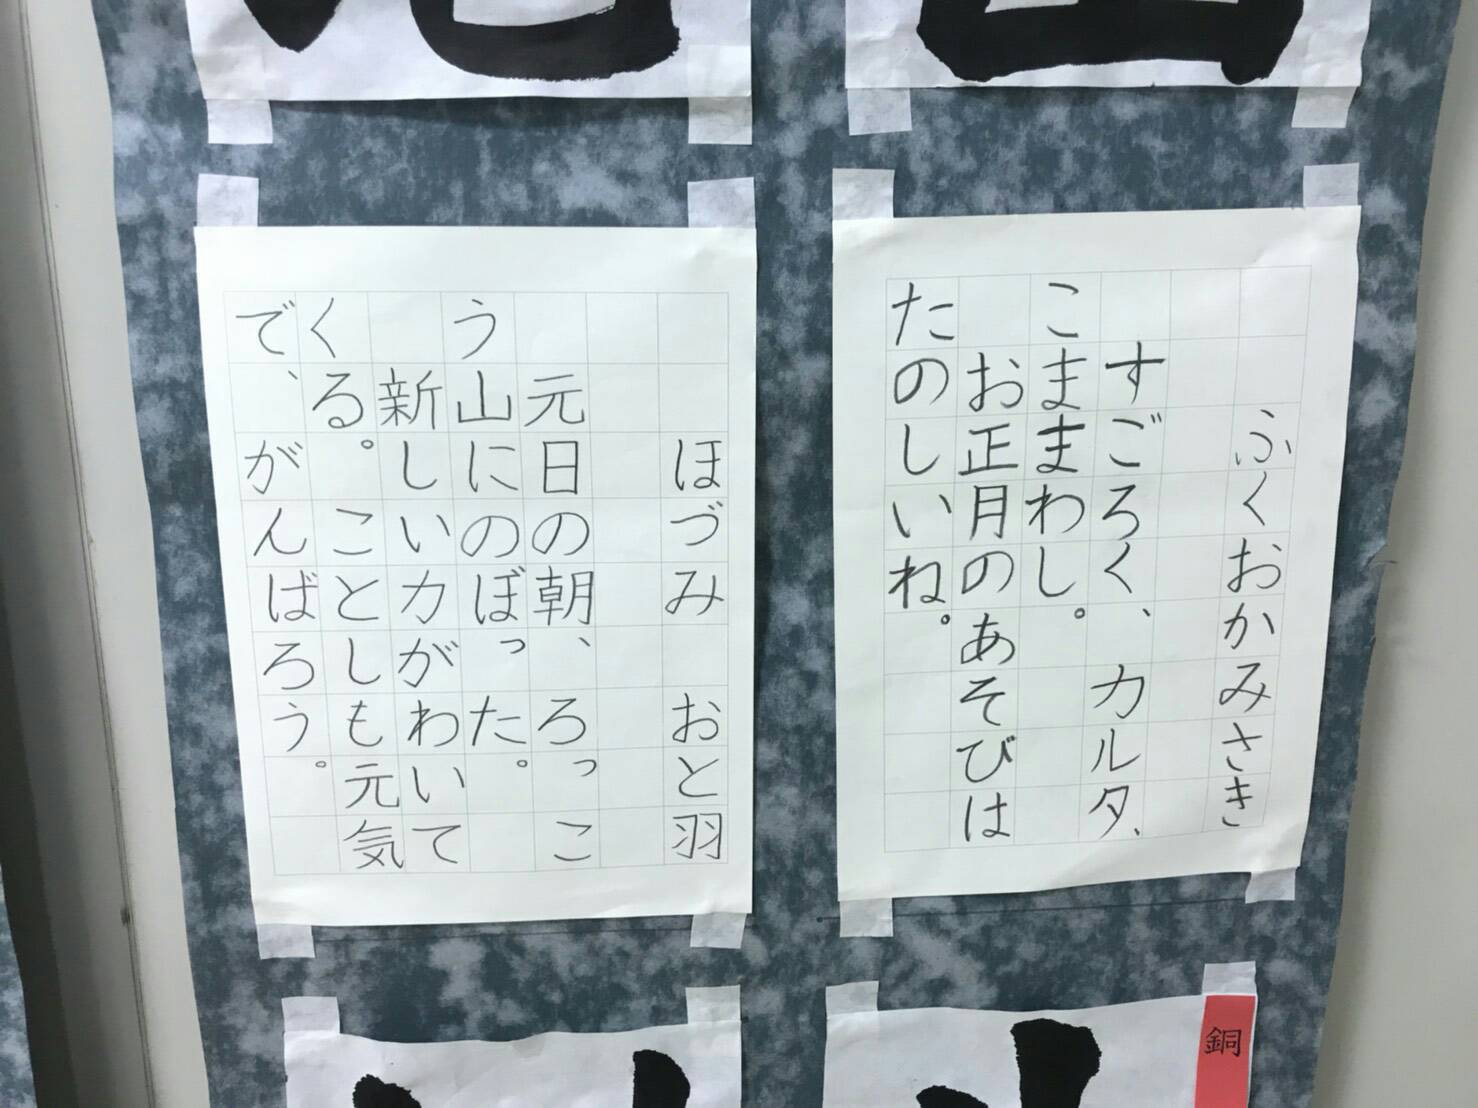 ふくおかみさき
すごろく、カルタ、
こままわし。
お正月のあそびは
たのしいね。
ほづみ おと羽
元日の朝、ろっこ
う山にのぼった。
新しい力がわいて
くる。ことしも元気
で、がんばろう。
銅